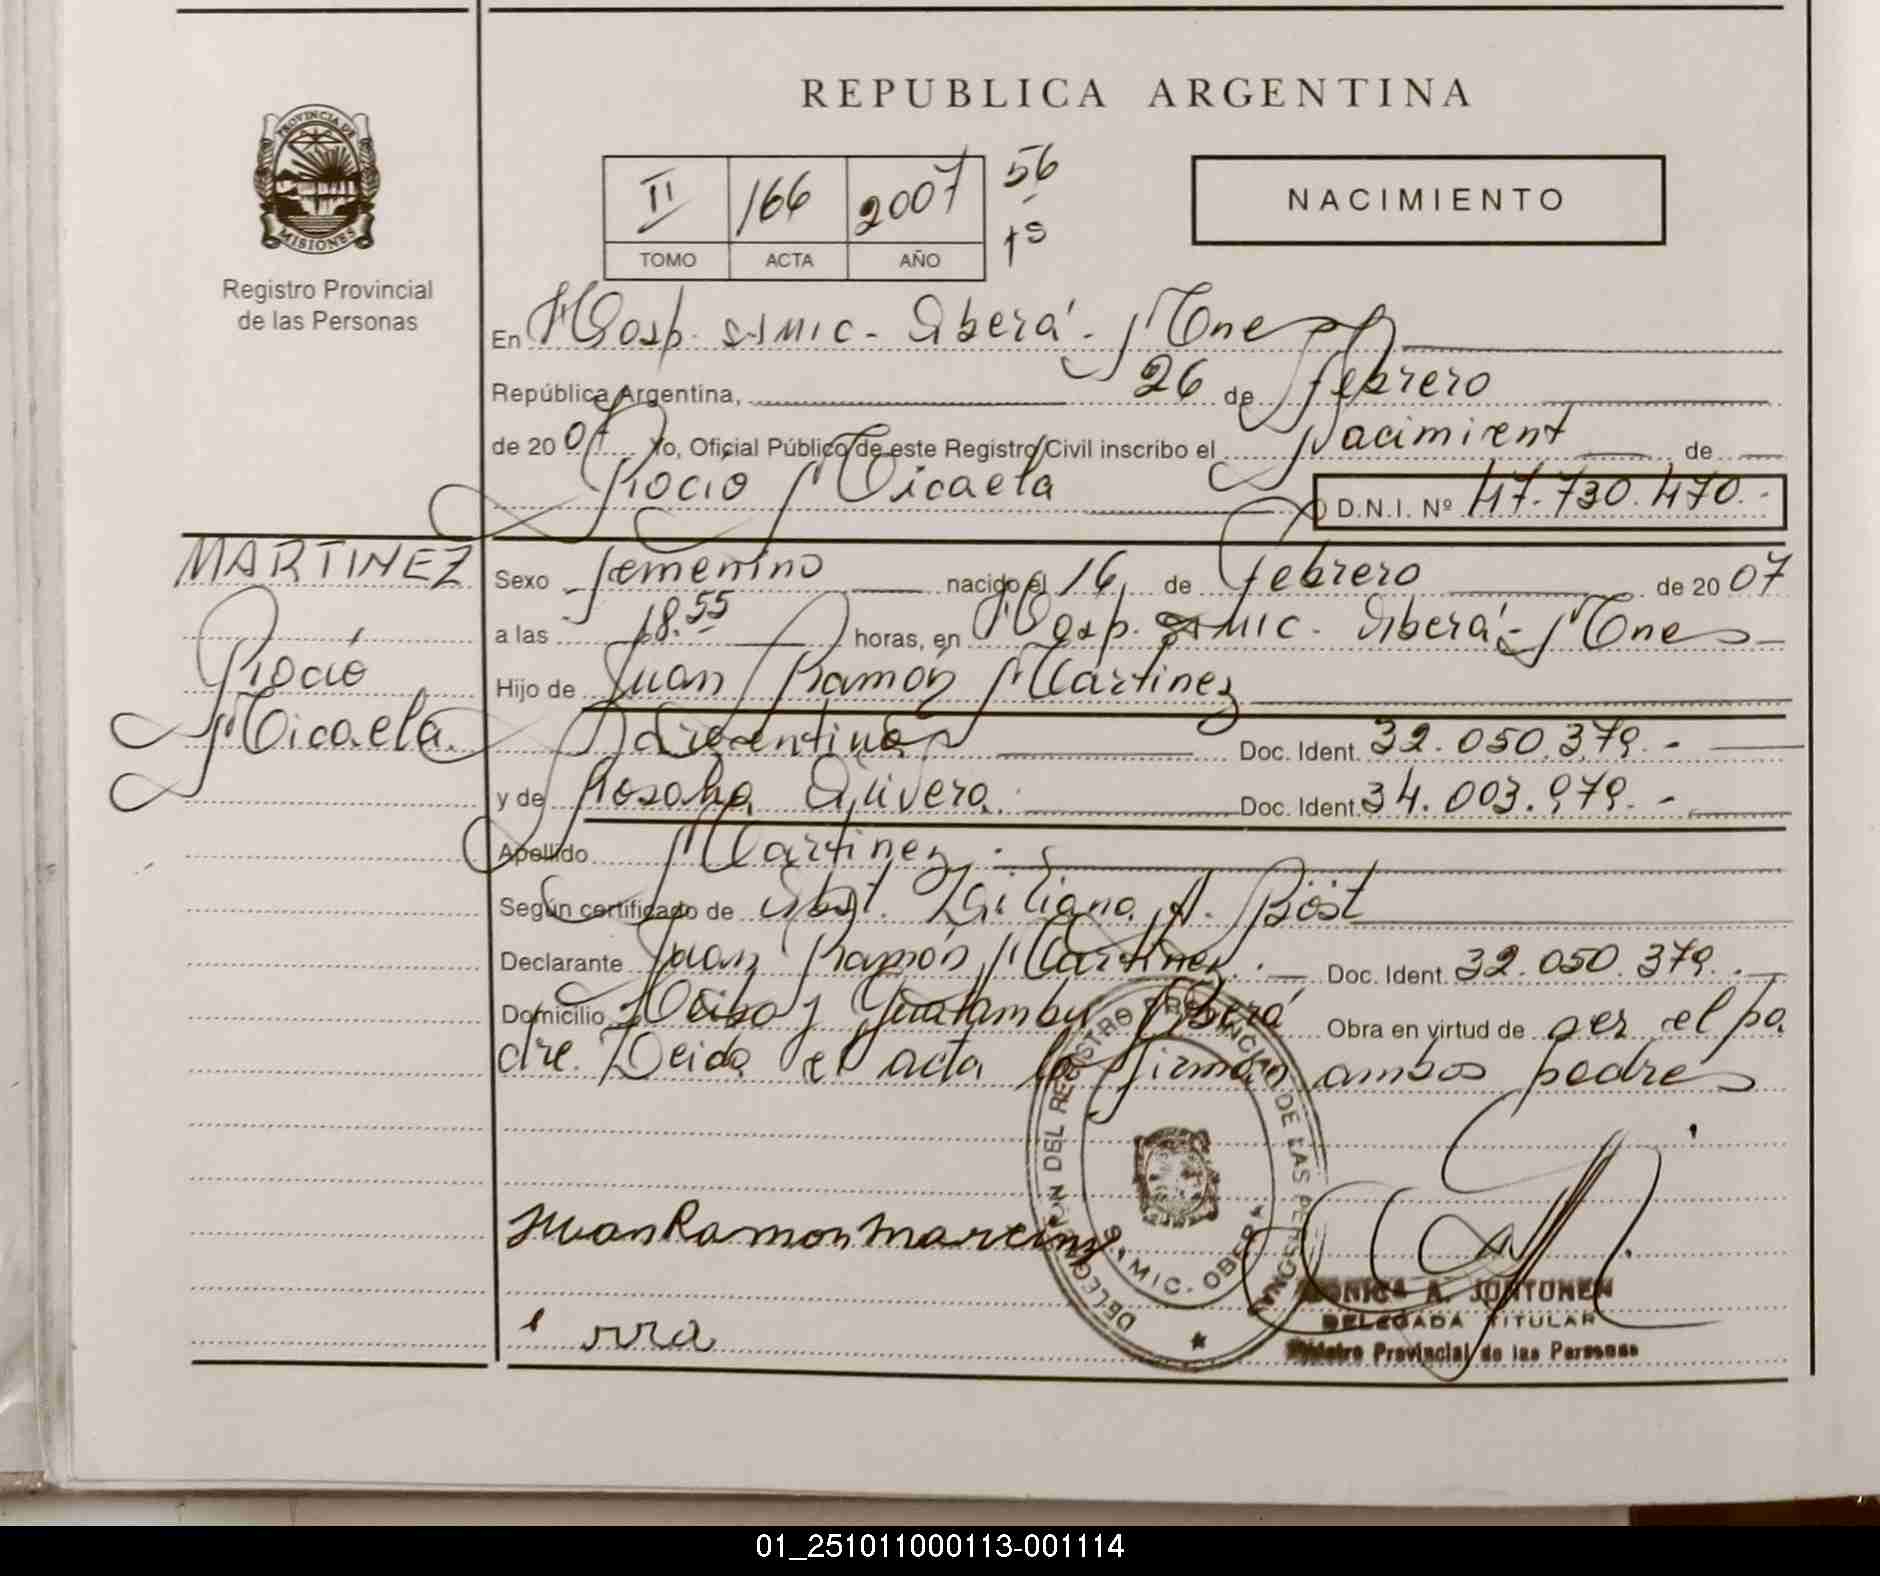 REPUBLICA ARGENTINA
PROVINCIA DE
MISIONES
Registro Provincial
de las Personas
II 166 2007 56
TOMO ACTA AÑO 1º
NACIMIENTO
En Hosp. SAMIC - Oberá - Mnes
República Argentina, 26 de febrero
de 2007 Yo, Oficial Público de este Registro Civil inscribo el Nacimient de
Rocío Micaela D.N.I. Nº 47.730.470.-
MARTINEZ
Rocío
Micaela
Sexo femenino nacido el 16 de febrero de 2007
a las 18.55 horas, en Hosp. SAMIC - Oberá - Mnes
Hijo de Juan Ramón Martinez
Argentinos Doc. Ident. 32.050.379.-
y de Rosana Doc. Ident. 34.003.979.-
Apellido Martinez.
Según certificado de Obst. Liliana A. Böst
Declarante Juan Ramón Martinez.- Doc. Ident. 32.050.379.-
Domicilio Ceibo y Guatambu Oberá Obra en virtud de ser el pa
dre. Leida el acta la firman ambos padres
Juan Ramon
DELEGACION DEL REGISTRO PROVINCIAL DE LAS PERSONAS
SAMIC. OBERA
MONICA A. JONTUNEN
DELEGADA TITULAR
Registro Provincial de las Personas
01_251011000113-001114